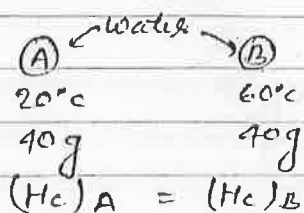 water
A B
20°C 60°C
40g 40g
(Hc)A = (Hc)B